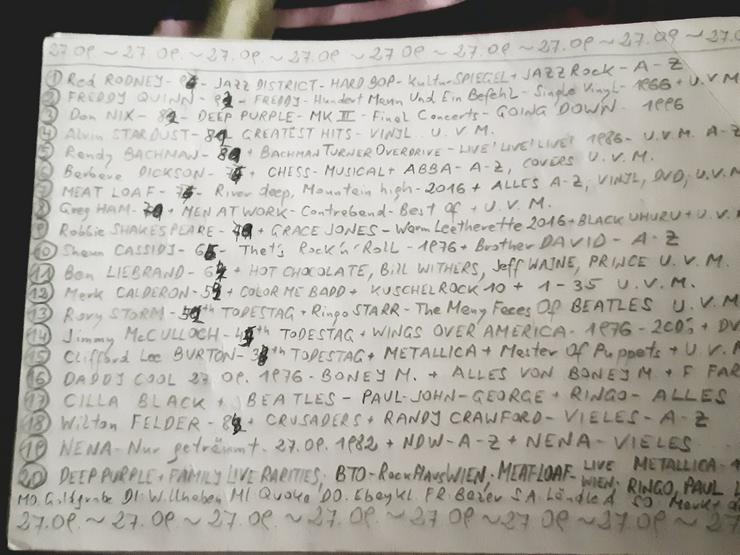 27.09 ~ 27.09. ~ 27.09. ~ 27.09 ~ 27.09 ~ 27.09. ~ 27.09 ~ 27.0
① Red RODNEY - JAZZ DISTRICT - HARD BOP - Kultur SPIEGEL + JAZZ Rock - A - Z
② FREDDY QUINN - FREDDY - Hundert Mann Und Ein Befehl - Single Vinyl - 1966 + U.V.M
③ Don NIX - DEEP PURPLE - MK III - Final Concerts - GOING DOWN - 1996
④ Alvin STARDUST - GREATEST HITS - VINYL. U. V. M.
⑤ Randy BACHMAN - + BACHMAN TURNER OVERDRIVE - LIVE! LIVE! LIVE! 1986 - U.V.M. A-Z
⑥ Barbara DICKSON - + CHESS - MUSICAL + ABBA - A-Z, COVERS U. V. M.
⑦ MEAT LOAF - River deep, Mountain high - 2016 + ALLES A-Z, VINYL, DVD, U.V.M
⑧ Greg HAM - + MEN AT WORK - Contraband - Best Of + U. V. M.
⑨ Robbie SHAKESPEARE - + GRACE JONES - Warm Leatherette 2016 + BLACK UHURU + U. V.
⑩ Shaun CASSIDY - That's Rock'n'Roll - 1976 + Brother DAVID - A-Z
⑪ Ben LIEBRAND - + HOT CHOCOLATE, BILL WITHERS, Jeff WAJNE, PRINCE U. V. M.
⑫ Mark CALDERON - + COLOR ME BADD + KUSCHELROCK 10 + 1 - 35 U. V. M.
⑬ Rory STORM - TODESTAG + Ringo STARR - The Many Faces Of BEATLES U. V. M
⑭ Jimmy McCULLOCH - TODESTAG + WINGS OVER AMERICA - 1976 - 2CDs + DV
⑮ Clifford Lee BURTON - TODESTAG + METALLICA + Master Of Puppets + U. V. M
⑯ DADDY COOL 27 09. 1976 - BONEY M. + ALLES VON BONEY M + F FAR
⑰ CILLA BLACK + BEATLES - PAUL - JOHN - GEORGE + RINGO - ALLES
⑱ Wilton FELDER - + CRUSADERS + RANDY CRAWFORD - VIELES - A-Z
⑲ NENA - Nur geträumt - 27.09. 1982 + NDW - A-Z + NENA - VIELES
⑳ DEEP PURPLE + FAMILY LIVE RARITIES, BTO - RockHaus WIEN, MEATLOAF - LIVE WIEN, METALLICA - RINGO, PAUL
MO. DI. Willhaben MI Quoka DO. Ebaykl. FR Bazar SA Ländled SO.
27.09. ~ 27.09. ~ 27.09. ~ 27.09. ~ 27.09. ~ 27.09 ~ 27.09 ~ 27